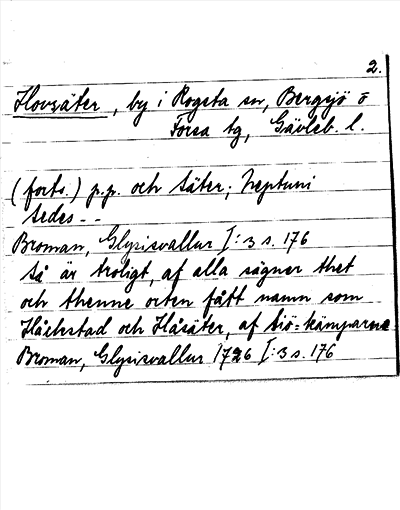 2.
Hovsäter, by i Rogsta sn, Bergsjö o
Forsa tg, Gävleb. l.
(forts.) p.p. och säter; Neptuni
sedes - -
Broman, Glysisvallur I:3 s. 176
så är troligt, af alla sägner thet
och thenne orten fått namn som
och Håsäter, af siö=kämparna
Broman, Glysisvallur 1726 I:3 s. 176